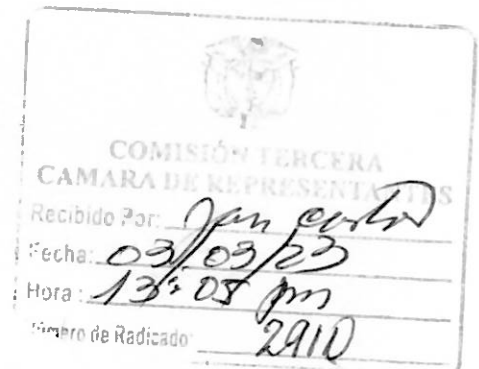 COMISIÓN TERCERA
CAMARA DE REPRESENTANTES
Recibido Por: Jan Carlos
Fecha: 03/03/23
Hora: 13:05 pm
Número de Radicado: 2910